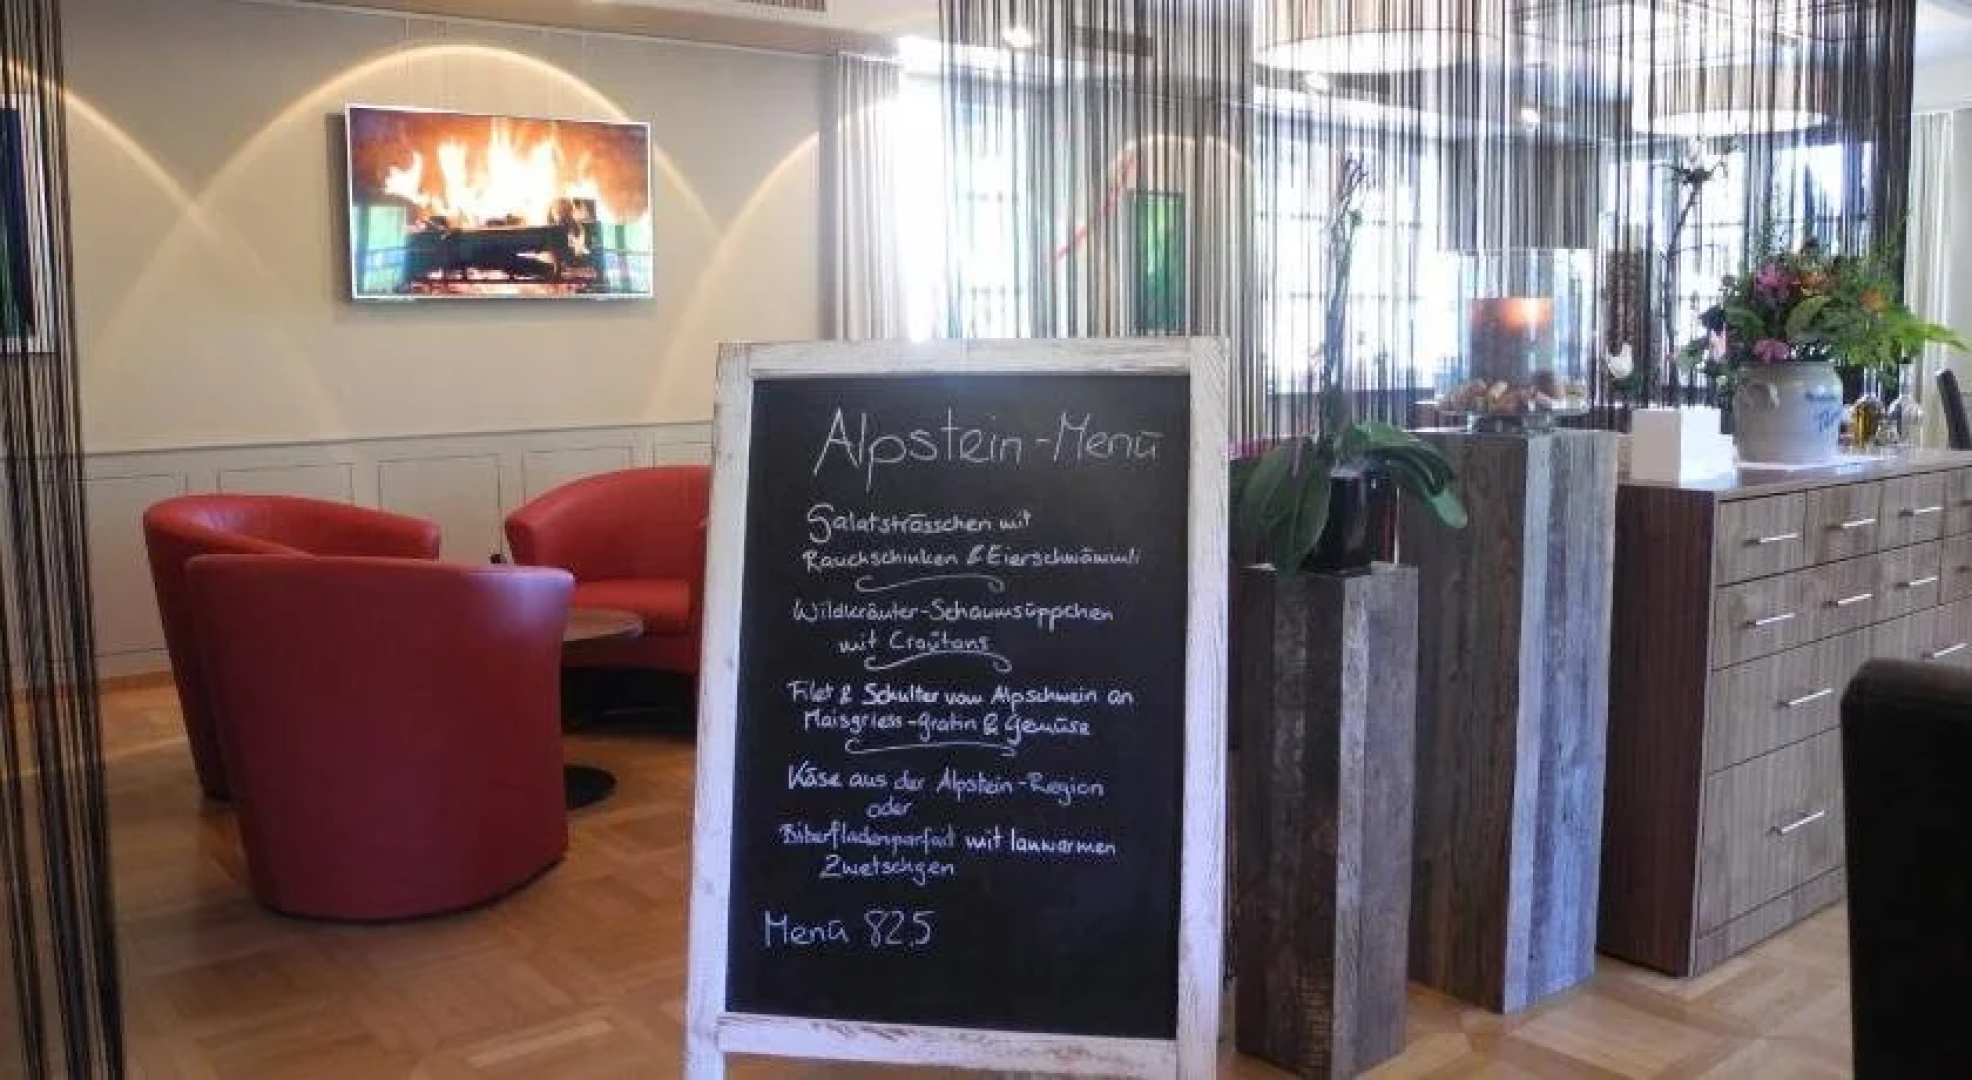 Alpstein-Menü
Salatsträsschen mit
Rauchschinken & Eierschwämmli
Wildkräuter-Schaumsüppchen
mit Croûtons
Filet & Schulter vom Alpschwein an
Maisgriess-gratin & Gemüse
Käse aus der Alpstein-Region
oder
Biberfladenparfait mit lauwarmen
Zwetschgen
Menü 82.5